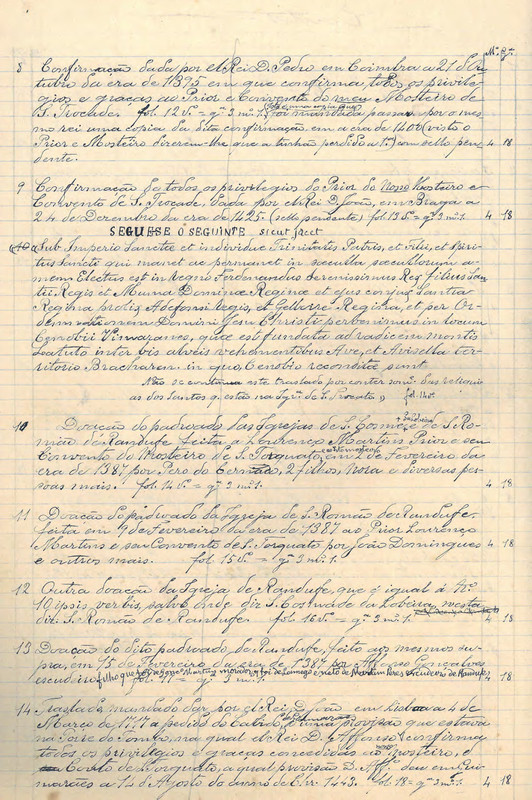 Mº Gª
8 Confirmação dada por el Rei D. Pedro em Coimbra a 21 de Ou-
tubro da era de 1395 em que confirma todos os privile-
gios e graças ao Prior e Convento do meu Mosteiro de
S. Trocade. fol. 12 vº = gª 3 mº 1. por mandado passar por o mes-
mo rei uma copia da dita confirmação em a era de 1400 (visto o
Prior e Mosteiro dizerem-lhe que a tinham perdido a 1ª) com sello pen- 4 18
dente.
9 Confirmação de todos os privilegios do Prior do Nosso Mosteiro e
Convento de S. Trocade, dada por el Rei D. João, em Braga a
24 de Dezembro da era de 1425. (sello pendente) fol. 13 vº = gª 3 mº 1. 4 18
SEGUESE O SEGUINTE sicut jacet
Sub Imperio Sanctae et individue Trinitatis Patris, et Filii, et Spiri-
tus Sancti qui manet ac permanet in saecula saeculorum a-
mem Electus est in regno Ferdenandus Serenissimus Rex filius San-
tii Regis et Muma Dominae Reginae et ejus conjux Santia
Regina prolis Adefonsi Regis, et Gelbirre Regina, et per Or-
dem Domini Jesu Christi pervenimus in locum
Cenobii Vimaranes, quae est fundata ad radicem montis
Latuto inter bis alveis Ave, et Avisella ter-
ritorio Bracharen. in quo Cenobio recondite sunt
Não se continua este traslado por conter som.te
as dos Santos q. estão na Igrª de S. Trocato, fol. 14 vº
10 Doação do padroado das Igrejas de S. Cosme e de S. Ro-
mão de Randufe feita a Lourenço Martins Prior e seu
Convento do Mosteiro de S. Torquato, em 2 de Fevereiro da
era de 1387 por, Pero do 2 filhos, Nora e diversas pes-
soas mais. fol. 14 vº = gª 3 mº 1. 4 18
11 Doação do padroado da Igreja de S. Romão de Randufe
feita em 9 de Fevereiro da era de 1387 ao Prior Lourenço
Martins e seu Convento de S. Torquato por João Domingues 4 18
e outros mais. fol. 15 vº = gª 3 mº 1.
12 Outra doação da Igreja de Randufe, que é igual á Nº
10 ipsis verbis, salvo onde diz S. Cosmado da Lobeira, nesta
diz S. Romão de Randufe. fol. 16 vº = gª 3 mº 1. 4 18
13 Doação do dito padroado, de Randufe, feito aos mesmos su-
pra, em 15 de Fevereiro da era de 1387 por Affonso Gonçalves
escudeiro, filho que foi de Gonçalo Martins morador e neto de Martim Peres Escudeiro de Randufe 4 18
fol. 17 vº = gª 3 mº 1.
14 Traslado mandado dar por el Rei D. João em Lisboa a 4 de
Março de 1717 a pedido do Cabido, d'uma provisão que estava
na Torre do Tombo, na qual el Rei D. Affonso 5º confirma
todos os privilegios e graças concedidas ao Mosteiro, e
Couto de S. Torquato, a qual provisão D. Affº deu em Gui-
marães a 14 d'Agosto do anno de Chr. 1443. fol. 18 = gª 3 mº 1. 4 18